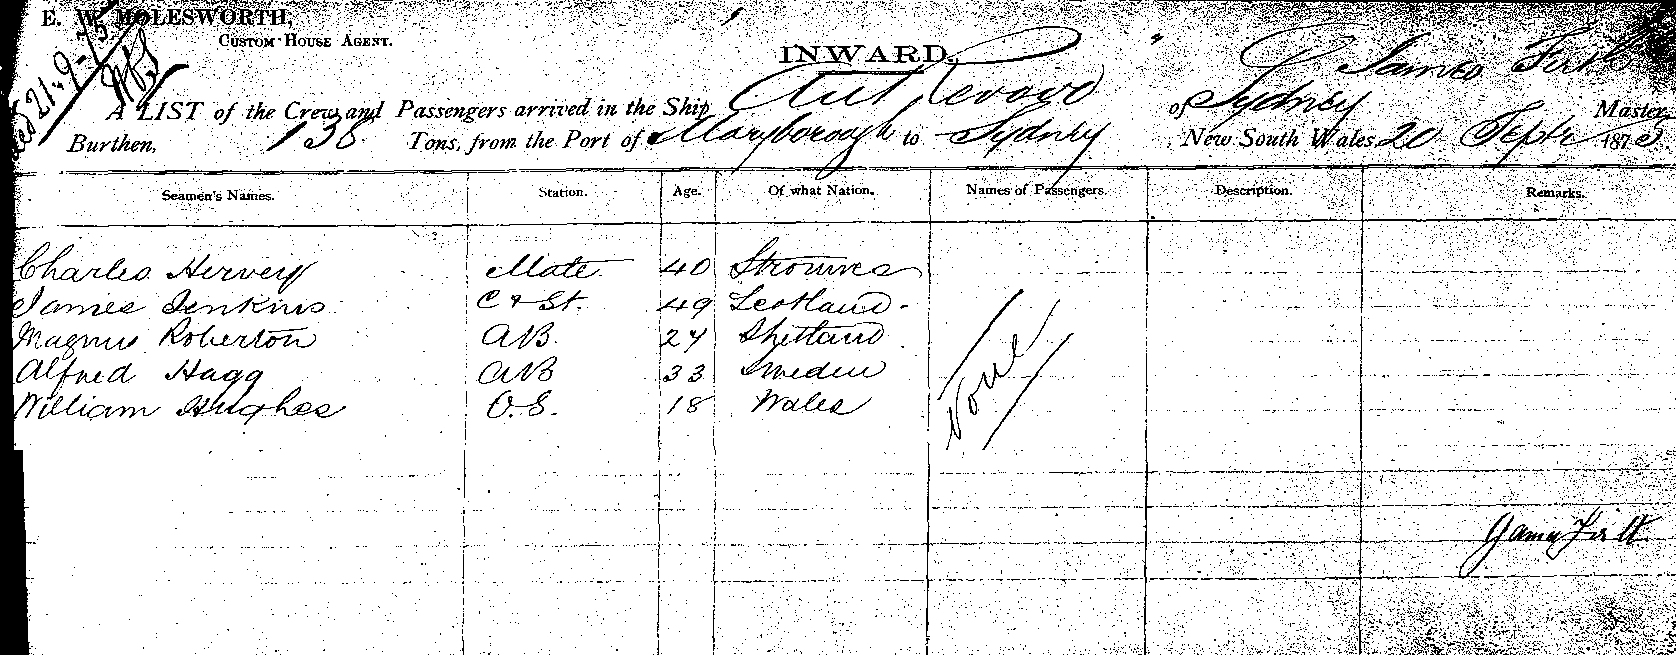 E. W. MOLESWORTH,
CUSTOM HOUSE AGENT.
INWARD.
A LIST of the Crew and Passengers arrived in the Ship of Sydney James Firth Master
Burthen, 138 Tons, from the Port of Maryborough to Sydney New South Wales, 20 Septr 187
Seamen's Names. Station. Age. Of what Nation. Names of Passengers. Description. Remarks.
Charles Hervey Mate 40
James Jenkins C & St. 49 Scotland
Magnus Roberton AB. 24 Shetland
Alfred Hagg AB 33 Sweden
William Hughes O.S. 18 Wales
None
James Firth